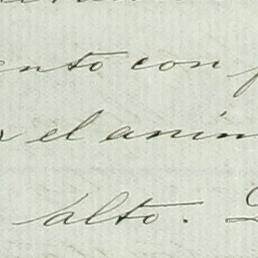 ento con
el anim
alto.